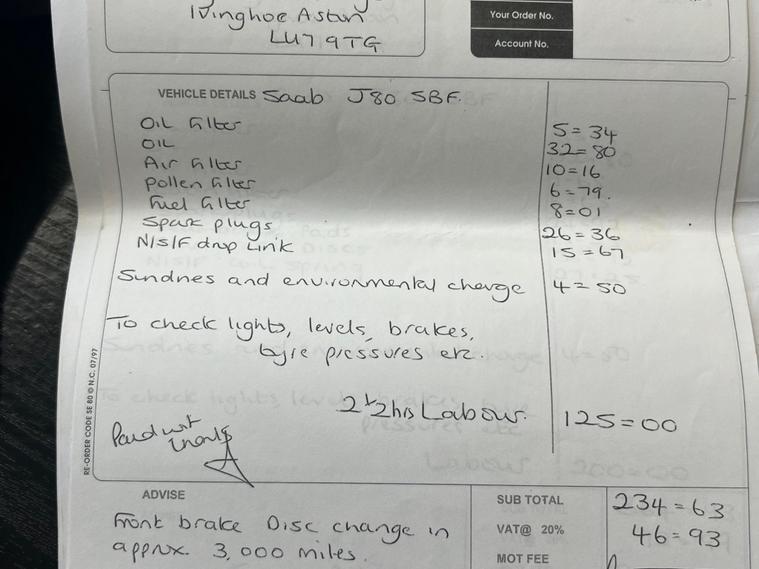 Ivinghoe Aston
LU7 9TG
Your Order No.
Account No.
VEHICLE DETAILS Saab J80 SBF.
Oil filter 5=34
OIL 32=80
Air filter 10=16
Pollen filter 6=79.
Fuel filter 8=01
Spark plugs 26=36
N/S/F drop Link 15=67
Sundries and environmental charge 4=50
To check lights, levels, brakes,
tyre pressures etc.
2 1/2 hrs Labour. 125=00
Paid wt
thanks
RE-ORDER CODE SE 80 © N.C. 07/97
ADVISE
Front brake Disc change in
approx. 3,000 miles.
SUB TOTAL 234=63
VAT@ 20% 46=93
MOT FEE